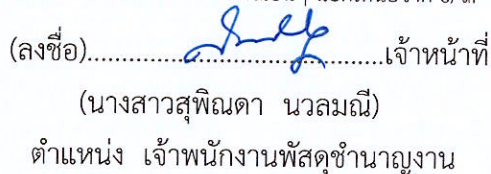 (ลงชื่อ)....................................เจ้าหน้าที่
(นางสาวสุพิณดา นวลมณี)
ตำแหน่ง เจ้าพนักงานพัสดุชำนาญงาน